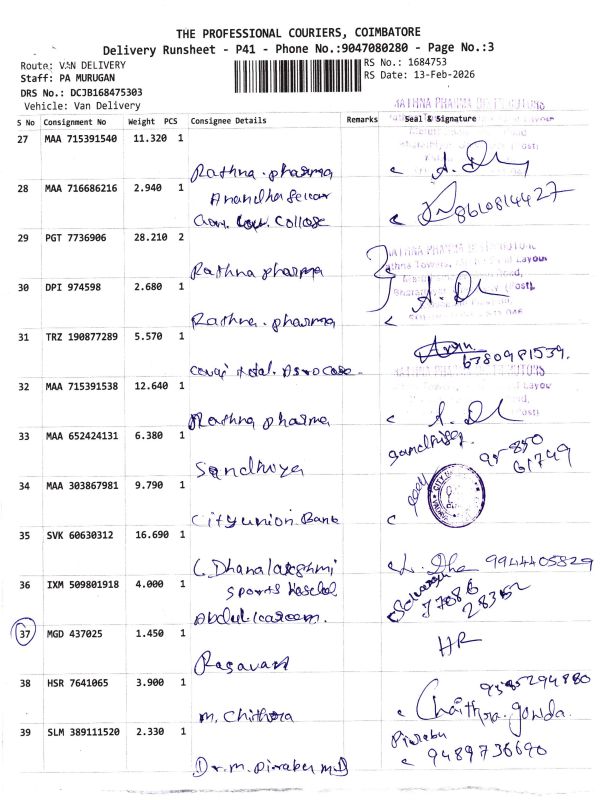 THE PROFESSIONAL COURIERS, COIMBATORE
Delivery Runsheet - P41 - Phone No.:9047080280 - Page No.:3
Route: VAN DELIVERY
RS No.: 1684753
Staff: PA MURUGAN
RS Date: 13-Feb-2026
DRS No.: DCJB168475303
Vehicle: Van Delivery
S No Consignment No Weight PCS Consignee Details Remarks Seal & Signature
27 MAA 715391540 11.320 1
Rathna . pharma
28 MAA 716686216 2.940 1
Anandha Sekar
Gov. Law. College
8610814427
29 PGT 7736906 28.210 2
Rathna pharma
30 DPI 974598 2.680 1
Rathna . pharma
31 TRZ 190877289 5.570 1
6380981539.
32 MAA 715391538 12.640 1
Rathna pharma
33 MAA 652424131 6.380 1
Sandhiya
95850
61749
34 MAA 303867981 9.790 1
City union Bank
35 SVK 60630312 16.690 1
C. Dhanalakshmi
9944405829
36 IXM 509801918 4.000 1
sports
Abdul kareem.
77086
28352
37 MGD 437025 1.450 1
HR
Ragavan
38 HSR 7641065 3.900 1
9585294880
M. Chithra
Chaithra. gowda.
39 SLM 389111520 2.330 1
Pirabu
9489736690
Dr. M. Pirabu MD